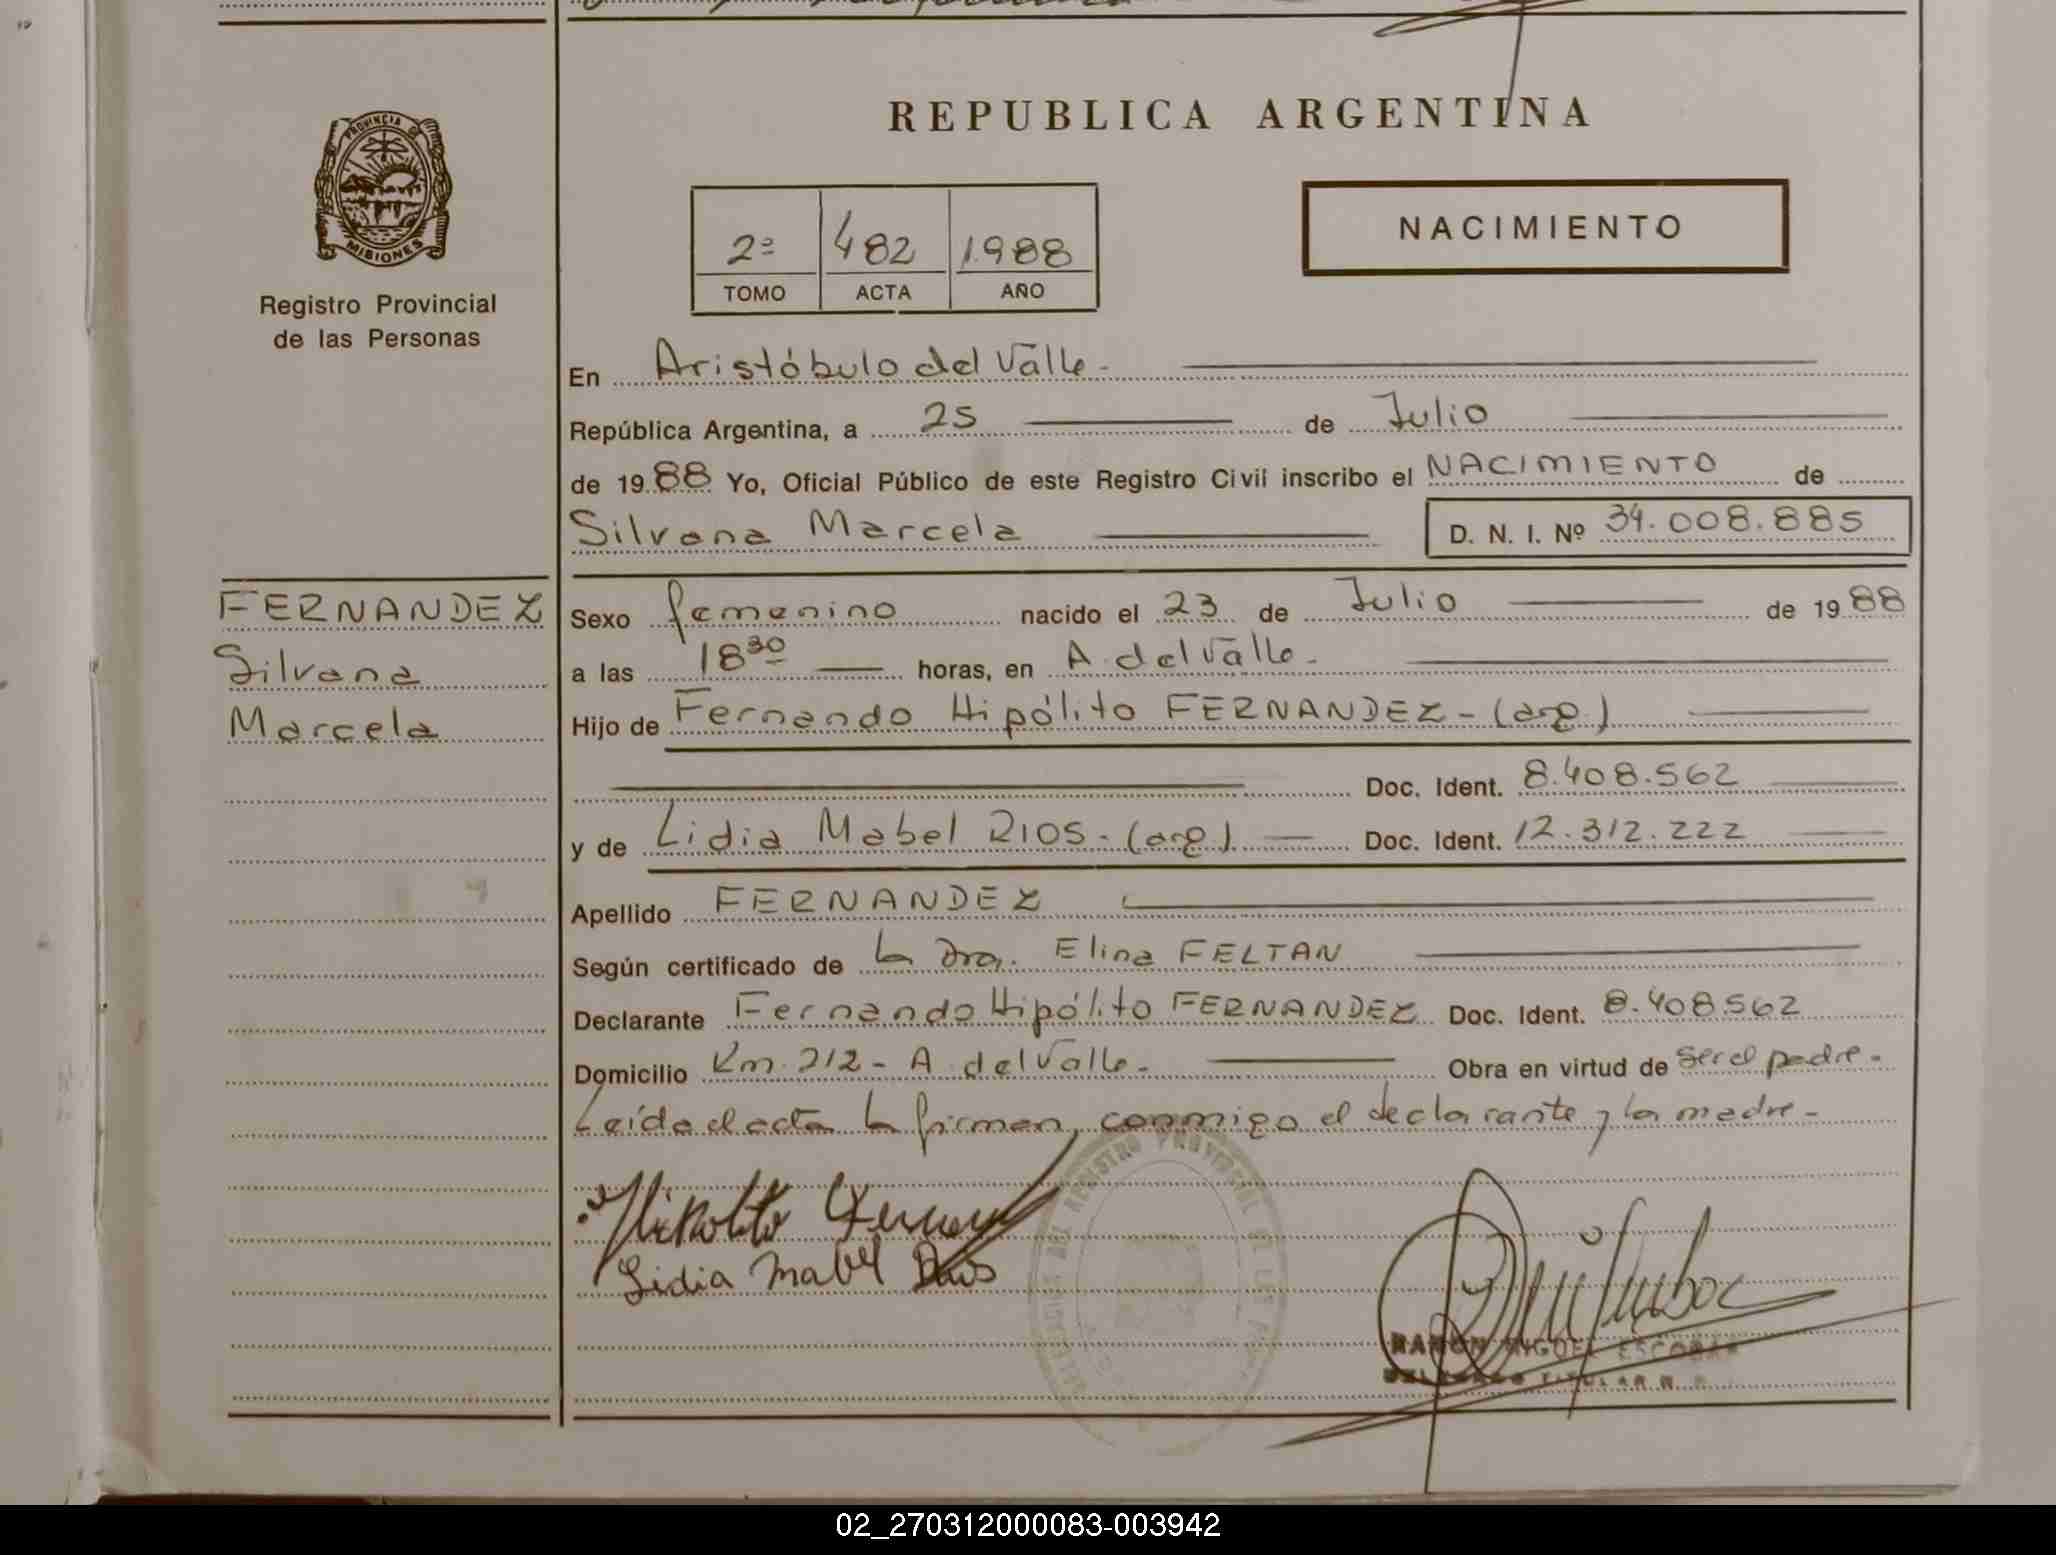 PROVINCIA D
MISIONES
Registro Provincial
de las Personas
REPUBLICA ARGENTINA
NACIMIENTO
2º 482 1988
TOMO ACTA AÑO
En Aristóbulo del Valle-
República Argentina, a 25 de Julio
de 1988 Yo, Oficial Público de este Registro Civil inscribo el NACIMIENTO de
Silvana Marcela D. N. I. Nº 34.008.885
FERNANDEZ
Silvana
Marcela
Sexo femenino nacido el 23 de Julio de 1988
a las 18 30 horas, en A. del Valle-
Hijo de Fernando Hipólito FERNANDEZ - (arg.)
Doc. Ident. 8.408.562
y de Lidia Mabel RIOS - (arg) Doc. Ident. 12.312.222
Apellido FERNANDEZ
Según certificado de la Dra. Elina FELTAN
Declarante Fernando Hipólito FERNANDEZ Doc. Ident. 8.408.562
Domicilio Km. 212 - A. del Valle- Obra en virtud de ser el padre-
Leída el acta la firman, conmigo el declarante y la madre-
Hipolito
Lidia Mabel Rios
REGISTRO PROVINCIAL DE LAS
RAMON MIGUEL ESCOBAR
TITULAR
02_270312000083-003942